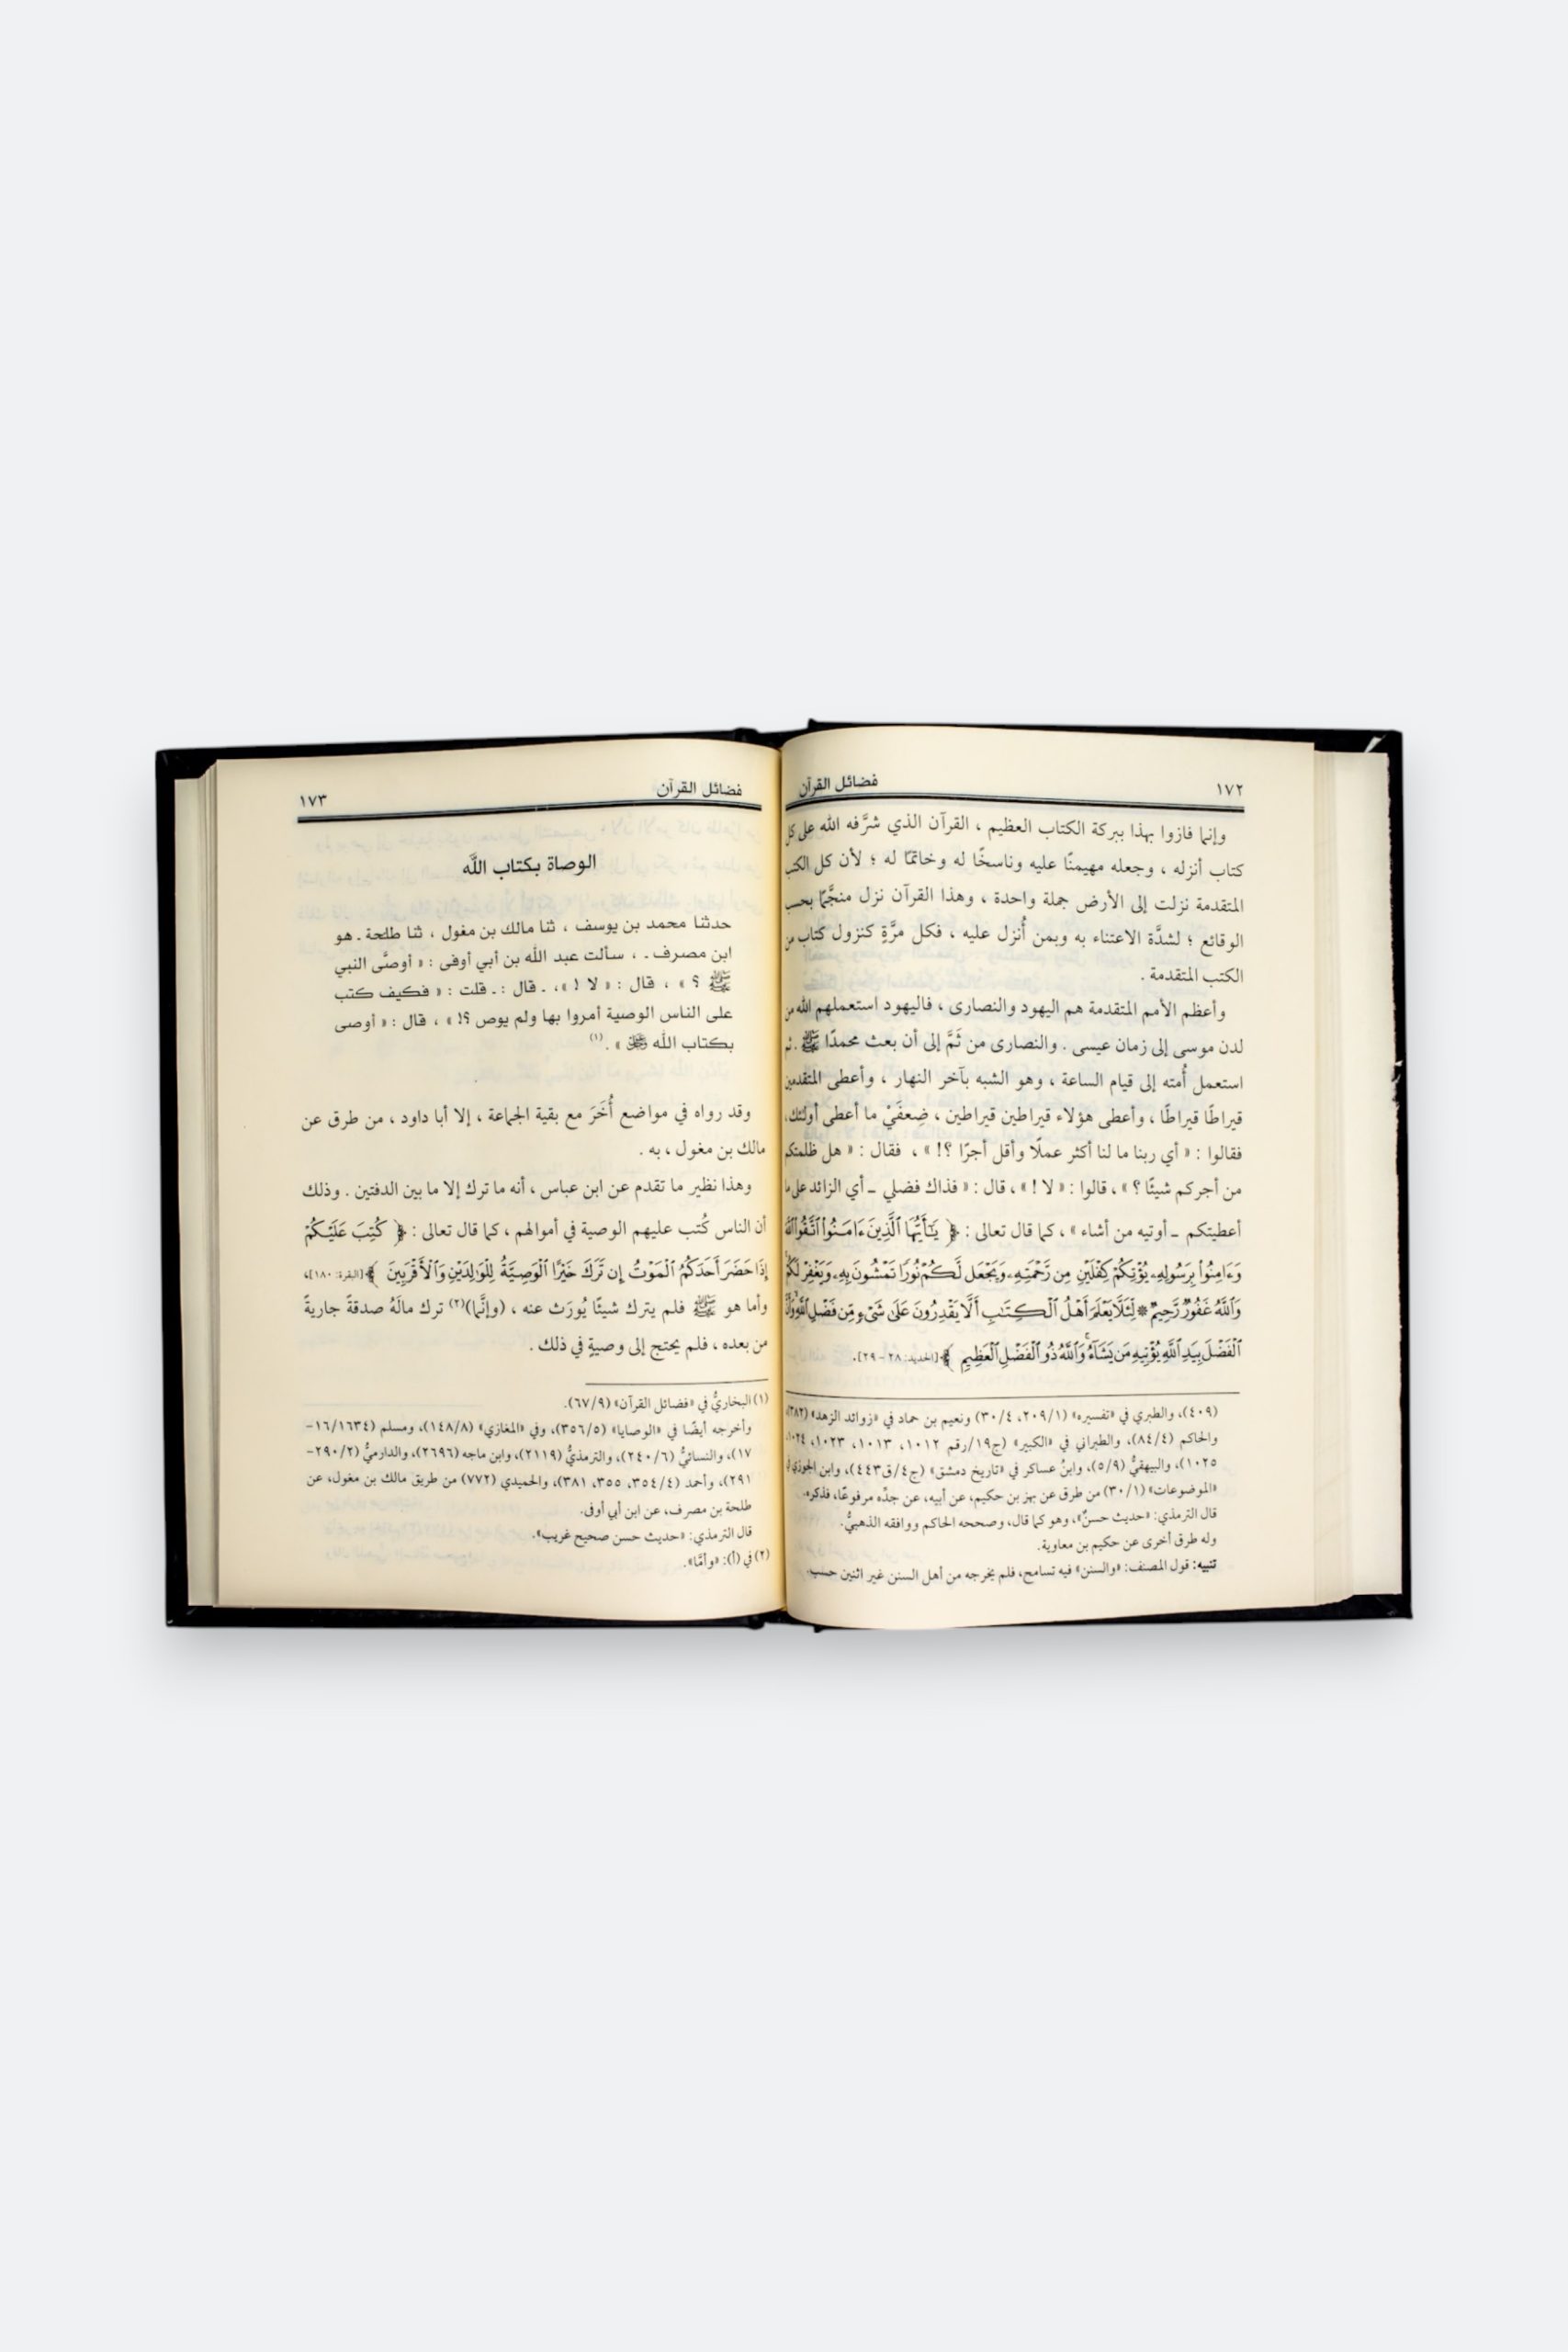 ١٧٢
فضائل القرآن
وإنما فازوا بهذا ببركة الكتاب العظيم ، القرآن الذي شرَّفه الله على كل
كتاب أنزله ، وجعله مهيمنًا عليه وناسخًا له وخاتمًا له ؛ لأن كل الكتب
المتقدمة نزلت إلى الأرض جملة واحدة ، وهذا القرآن نزل منجَّمًا بحسب
الوقائع ؛ لشدَّة الاعتناء به وبمن أُنزل عليه ، فكل مرَّةٍ كنزول كتاب من
الكتب المتقدمة .
وأعظم الأمم المتقدمة هم اليهود والنصارى ، فاليهود استعملهم الله من
لدن موسى إلى زمان عيسى . والنصارى من ثَمَّ إلى أن بعث محمدًا ﷺ . ثم
استعمل أُمته إلى قيام الساعة ، وهو الشبه بآخر النهار ، وأعطى المتقدمين
قيراطًا قيراطًا ، وأعطى هؤلاء قيراطين قيراطين ، ضِعفَيْ ما أعطى أولئك،
فقالوا : « أي ربنا ما لنا أكثر عملًا وأقل أجرًا ؟! » ، فقال : « هل ظلمتكم
من أجركم شيئًا ؟ » ، قالوا : « لا ! » ، قال : « فذاك فضلي ـ أي الزائد على ما
أعطيتكم ـ أوتيه من أشاء » ، كما قال تعالى : ﴿ يَٰٓأَيُّهَا ٱلَّذِينَ ءَامَنُوا۟ ٱتَّقُوا۟ ٱللَّهَ
وَءَامِنُوا۟ بِرَسُولِهِۦ يُؤْتِكُمْ كِفْلَيْنِ مِن رَّحْمَتِهِۦ وَيَجْعَل لَّكُمْ نُورًا تَمْشُونَ بِهِۦ وَيَغْفِرْ لَكُمْ
وَٱللَّهُ غَفُورٌ رَّحِيمٌ * لِّئَلَّا يَعْلَمَ أَهْلُ ٱلْكِتَٰبِ أَلَّا يَقْدِرُونَ عَلَىٰ شَىْءٍ مِّن فَضْلِ ٱللَّهِ وَأَنَّ
ٱلْفَضْلَ بِيَدِ ٱللَّهِ يُؤْتِيهِ مَن يَشَآءُ وَٱللَّهُ ذُو ٱلْفَضْلِ ٱلْعَظِيمِ ﴾ [الحديد: ٢٨ - ٢٩].
(٤٠٩)، والطبري في «تفسيره» (٢٠٩/١، ٣٠/٤) ونعيم بن حماد في «زوائد الزهد» (٣٨٢)
والحاكم (٨٤/٤)، والطبراني في «الكبير» (ج١٩/رقم ١٠١٢، ١٠١٣، ١٠٢٣، ١٠٢٤،
١٠٢٥)، والبيهقيُّ (٥/٩)، وابنُ عساكر في «تاريخ دمشق» (ج٤/ق٤٤٣)، وابن الجوزي في
«الموضوعات» (٣٠/١) من طرق عن بهز بن حكيم، عن أبيه، عن جدِّه مرفوعًا، فذكره.
قال الترمذي: «حديث حسنٌ»، وهو كما قال، وصححه الحاكم ووافقه الذهبيُّ.
وله طرق أخرى عن حكيم بن معاوية.
تنبيه: قول المصنف: «والسنن» فيه تسامح، فلم يخرجه من أهل السنن غير اثنين حسب.
فضائل القرآن
١٧٣
الوصاة بكتاب اللَّه
حدثنا محمد بن يوسف ، ثنا مالك بن مغول ، ثنا طلحة ـ هو
ابن مصرف ـ ، سألت عبد الله بن أبي أوفى : « أوصَّى النبي
ﷺ ؟ » ، قال : « لا ! »، ـ قال : ـ قلت : « فكيف كتب
على الناس الوصية أمروا بها ولم يوص ؟! » ، قال : « أوصى
بكتاب الله ﷻ » . (١)
وقد رواه في مواضع أُخَرَ مع بقية الجماعة ، إلا أبا داود ، من طرق عن
مالك بن مغول ، به .
وهذا نظير ما تقدم عن ابن عباس ، أنه ما ترك إلا ما بين الدفتين . وذلك
أن الناس كُتب عليهم الوصية في أموالهم ، كما قال تعالى : ﴿ كُتِبَ عَلَيْكُمْ
إِذَا حَضَرَ أَحَدَكُمُ ٱلْمَوْتُ إِن تَرَكَ خَيْرًا ٱلْوَصِيَّةُ لِلْوَٰلِدَيْنِ وَٱلْأَقْرَبِينَ ﴾ [البقرة: ١٨٠]،
وأما هو ﷺ فلم يترك شيئًا يُورَث عنه ، (وإنَّما)(٢) ترك مالَهُ صدقةً جاريةً
من بعده ، فلم يحتج إلى وصيةٍ في ذلك .
(١) البخاريُّ في «فضائل القرآن» (٦٧/٩).
وأخرجه أيضًا في «الوصايا» (٣٥٦/٥)، وفي «المغازي» (١٤٨/٨)، ومسلم (١٦/١٦٣٤-
١٧)، والنسائيُّ (٢٤٠/٦)، والترمذيُّ (٢١١٩)، وابن ماجه (٢٦٩٦)، والدارميُّ (٢٩٠/٢-
٢٩١)، وأحمد (٣٥٤/٤، ٣٥٥، ٣٨١)، والحميدي (٧٧٢) من طريق مالك بن مغول، عن
طلحة بن مصرف، عن ابن أبي أوفى.
قال الترمذي: «حديث حسن صحيح غريب».
(٢) في (أ): «وأمَّا».